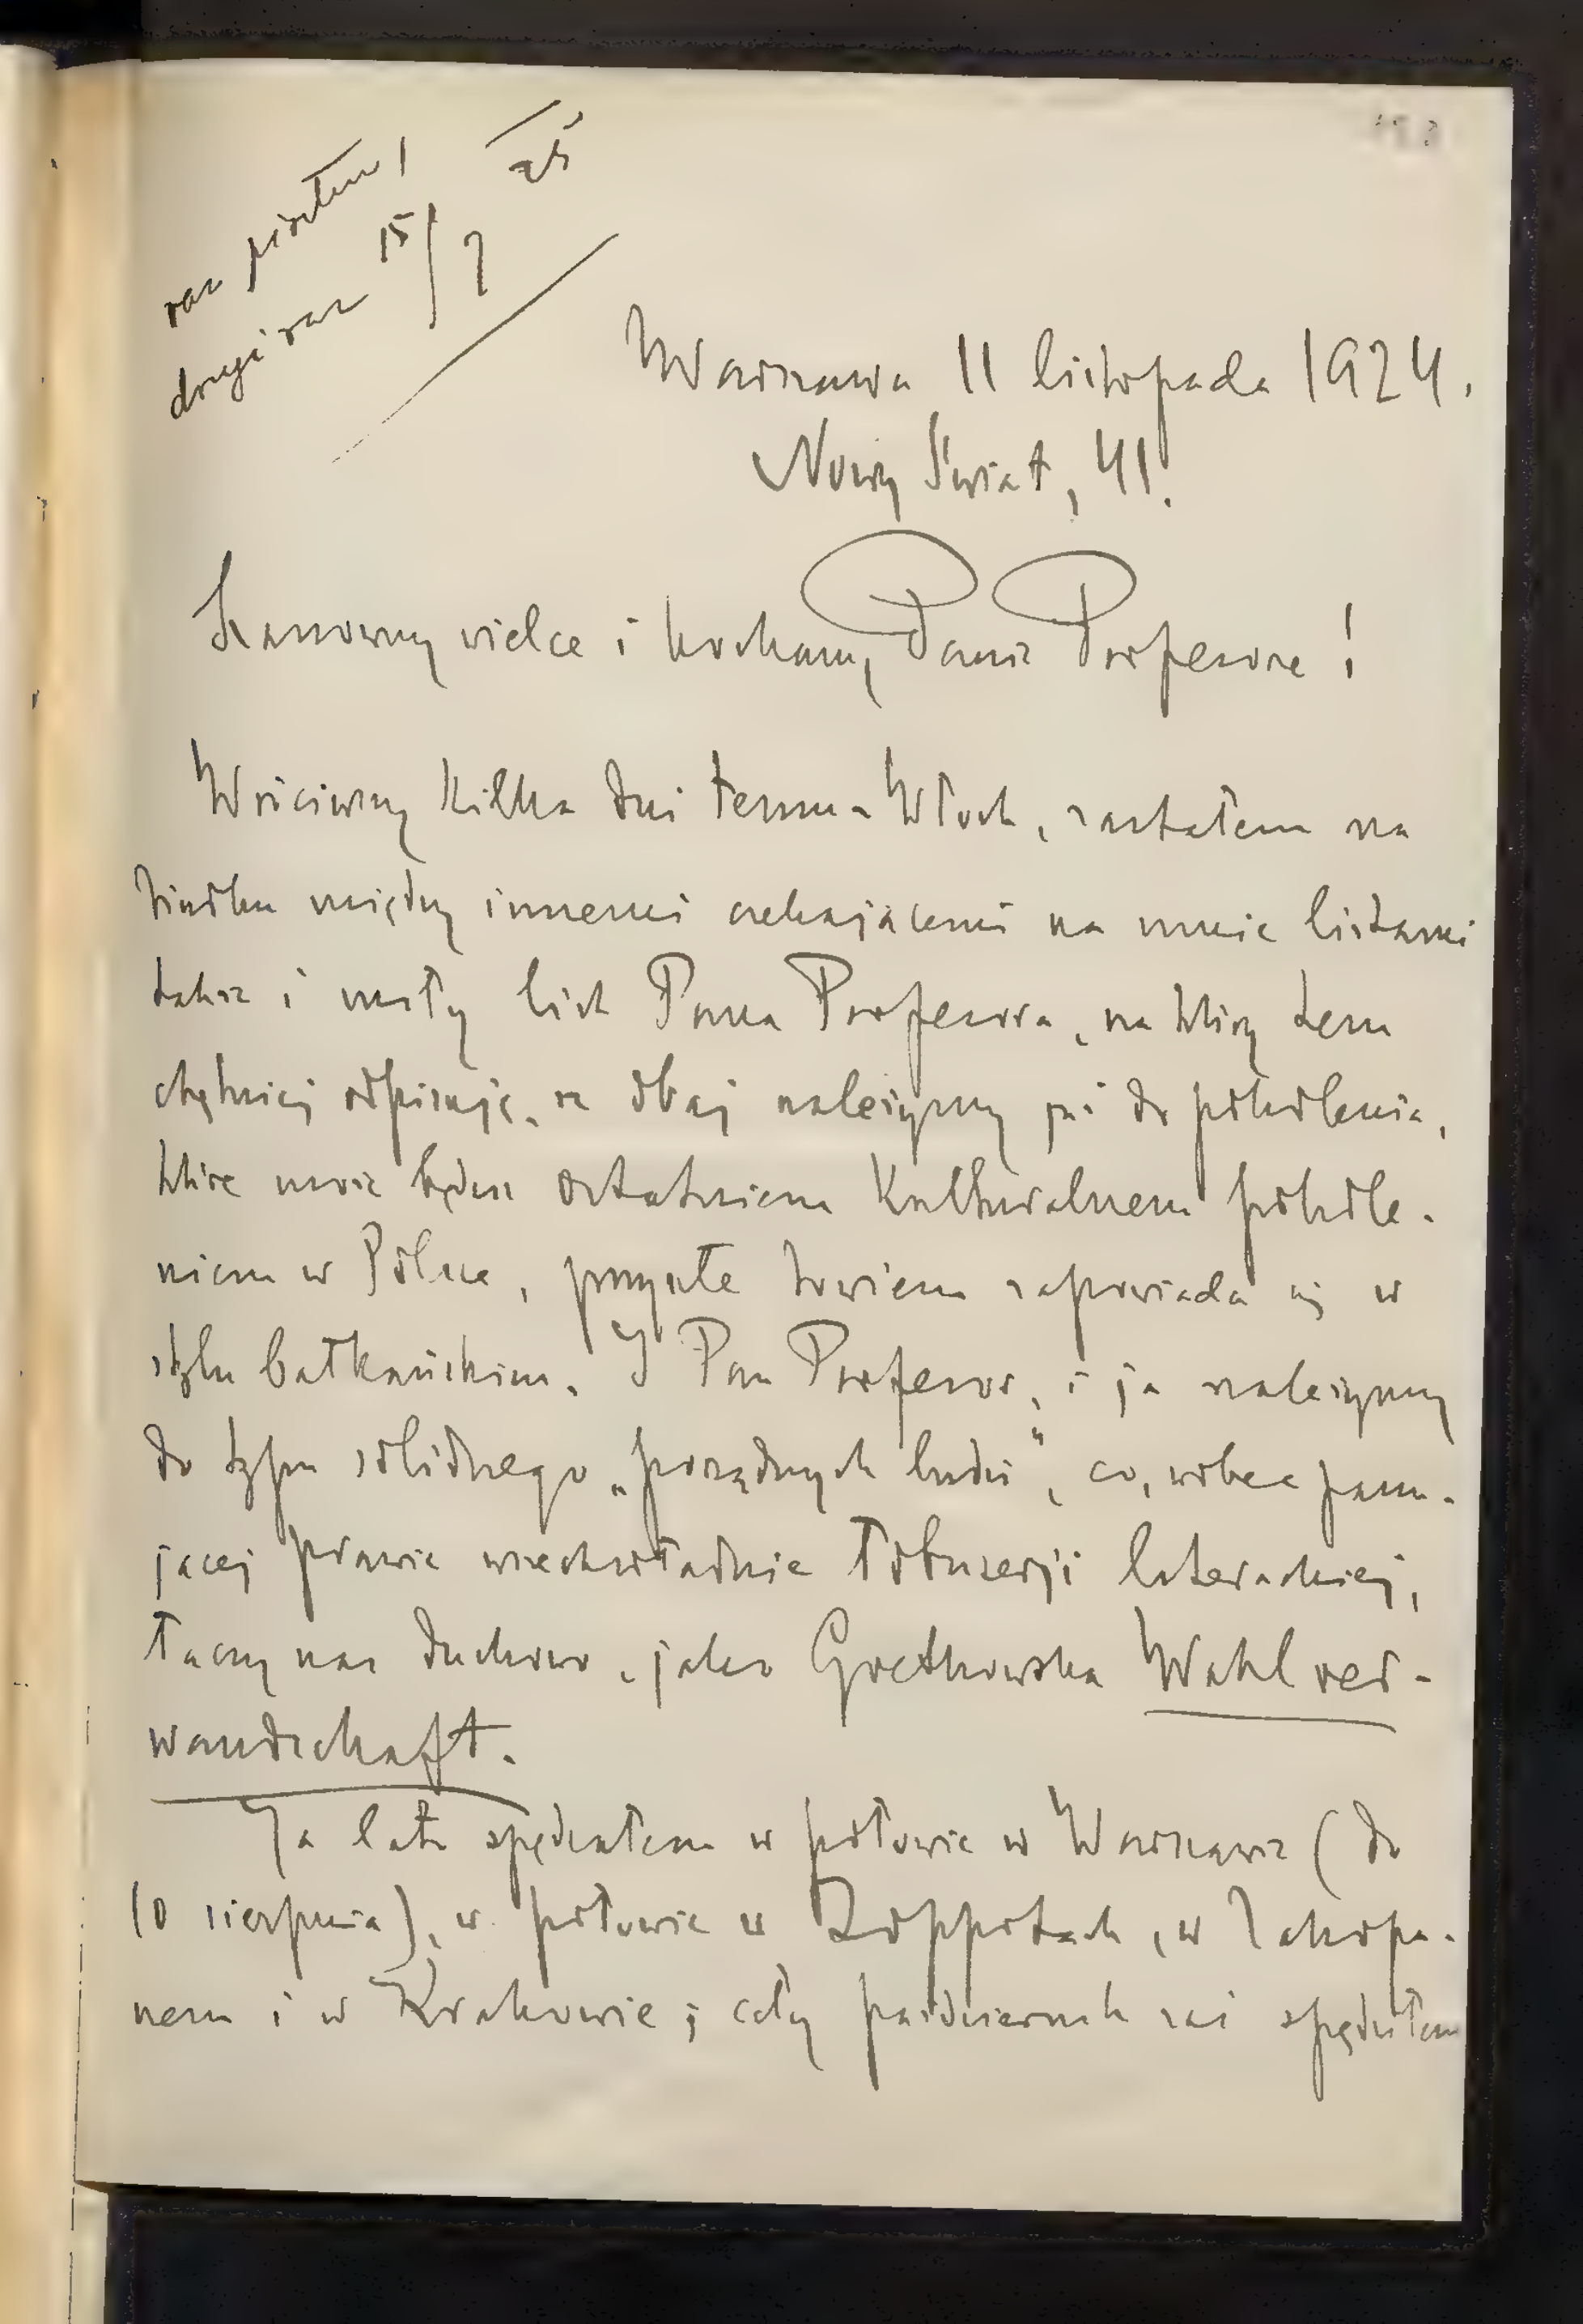 raz pisałem!
drugi raz 15/7 25
Warszawa 11 listopada 1924.
Nowy Świat, 41.
Szanowny wielce i kochany Panie Profesorze!
Wróciwszy kilka dni temu z Włoch, zastałem na
biurku między innemi czekającemi na mnie listami
także i miły list Pana Profesora, na który tem
chętniej odpisuję, że obaj należymy już do pokolenia,
które może będzie ostatniem kulturalnem pokole-
niem w Polsce, przyszłe bowiem zapowiada się w
stylu bałkańskim. I Pan Profesor, i ja należymy
do typu solidnego „porządnych ludzi", co, wobec panu-
jącej prawie wszechwładnie łobuzerji literackiej,
łączy nas duchowo, jako Goethowska Wahlver-
wandschaft.
Ja lato spędzałem w połowie w Warszawie (do
10 sierpnia), w połowie w Zoppotach, w Zakopa-
nem i w Krakowie; cały październik zaś spędziłem